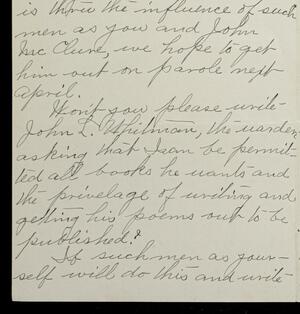 is thru the influence of such
men as you and John
Mc Clure, we hope to get
him out on parole next
April.
Won't you please write
John L. Whitman, the warden
asking that I can be permit-
ted all books he wants and
the privelage of writing and
getting his poems out to be
published?
If such men as your-
self will do this and write